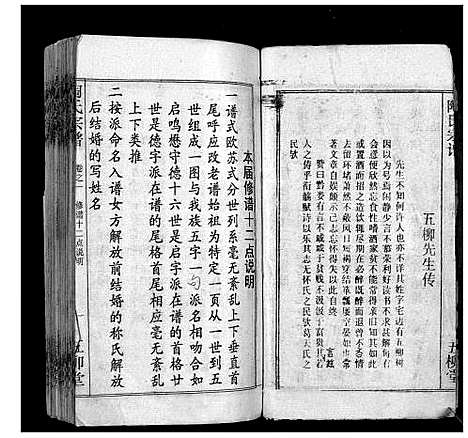 陶氏宗谱
五柳先生传
先生不知何许人也亦不详其姓字宅边有五柳树
因以为号焉闲静少言不慕荣利好读书不求甚解
每有会意便欣然忘食性嗜酒家贫不能常得亲旧知其如此
或置酒而招之造饮辄尽期在必醉既醉而退曾不吝情
去留环堵萧然不蔽风日短褐穿结箪瓢屡空晏如也常
著文章自娱颇示己志忘怀得失以此自终
赞曰黔娄有言不戚戚于贫贱不汲汲于富贵其言兹
若人之俦乎衔觞赋诗以乐其志无怀氏之民欤葛天氏之
民欤
五柳堂
陶氏宗谱
卷之一
修谱十二点说明
五柳堂
本届修谱十二点说明
一谱式欧苏式分世列系毫无紊乱上下垂直首
尾呼应改老谱始祖为特定一页从一世到五
世组成一图与我族五字一句派名相吻合如
启鸣懋守德十六世是启字派在谱的首格廿
世是德字派在谱的尾格首尾相应毫无紊乱
上下类推
二按派命名入谱女方解放前结婚的称氏解放
后结婚的写姓名